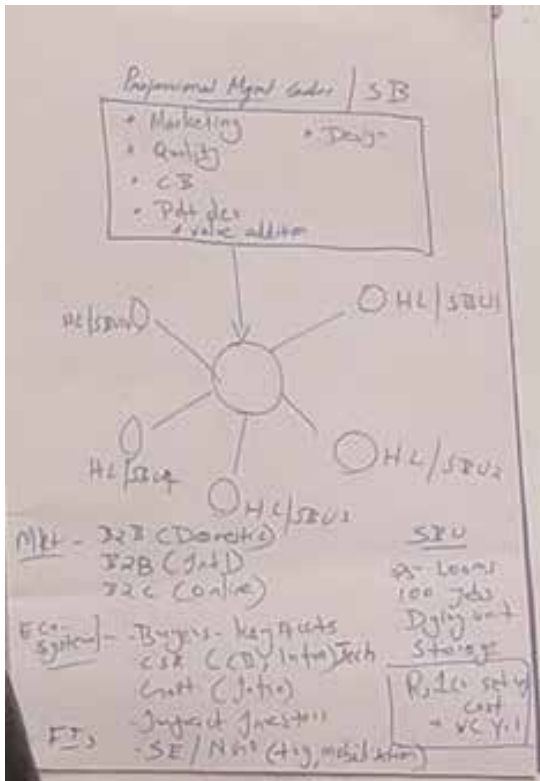 Professional Mgmt cadre / SB
• Marketing
• Design
• Quality
• CB
• Pdt dev
+ value addition
HL/SBU1
HL/SBU2
HL/SBU3
HL/SBU4
HL/SBU
Mkt - B2B (Domestic)
B2B (Intl)
B2C (Online)
Eco-
System - - Buyers - Key Accts
CSR (CD, Infra) Tech
Govt (Infra)
- Impact Investors
FIs
- SE / NGOs (trg, mobilisation)
SBU
25 - Looms
100 jobs
Dyeing unit
Storage
Rs 1cr set up
cost
+ WC Yr 1